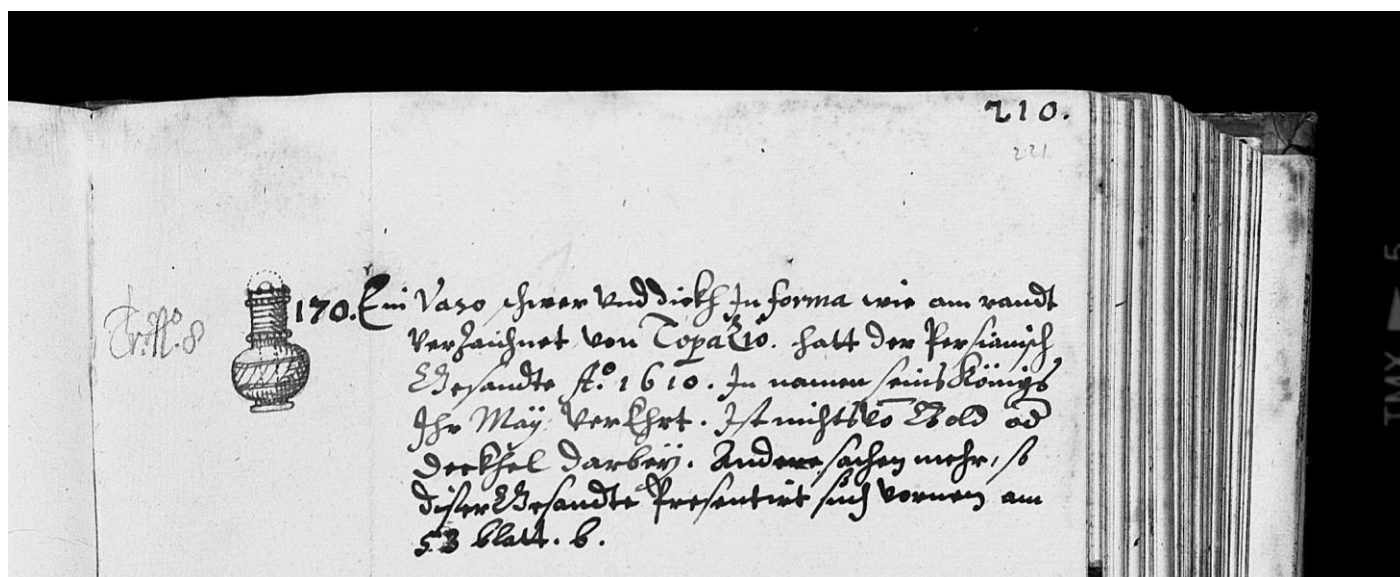 210.
221
170. Ein Vaso schwer vnd dickh In forma wie am randt
verzaichnet von Topazio. hatt der Persianisch
Gesandte Ao. 1610. In namen seins Königs
Ihr May: verEhrt. Ist nichts vō Gold od
deckhel darbeÿ. Andere sachen mehr, so
diser Gesandte Presentirt such vornen am
53 blatt. b.
No. 8